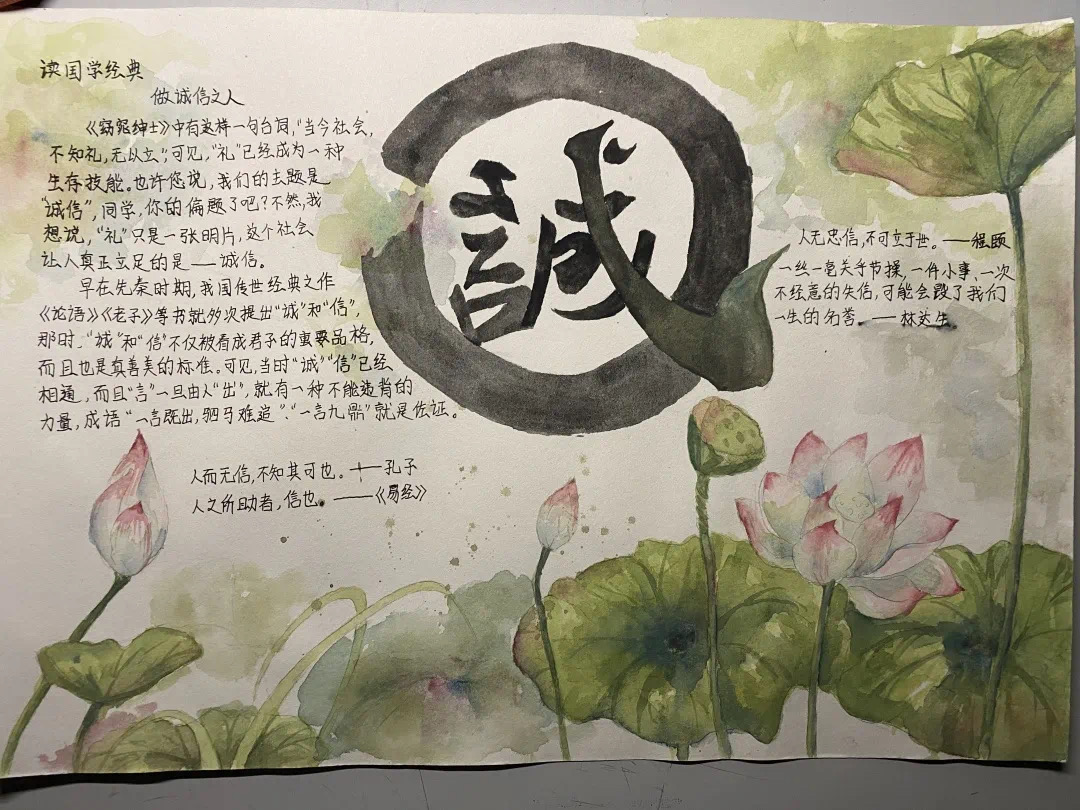 读国学经典
做诚信之人
《窈窕绅士》中有这样一句台词，“当今社会，
不知礼，无以立”；可见，“礼”已经成为一种
生存技能。也许您说，我们的主题是
“诚信”，同学，你的偏题了吧？不然，我
想说，“礼”只是一张明片，这个社会
让人真正立足的是——诚信。
早在先秦时期，我国传世经典之作
《论语》《老子》等书就多次提出“诚”和“信”，
那时，“诚”和“信”不仅被看成君子的重要品格，
而且也是真善美的标准。可见，当时“诚”“信”已经
相通，而且“言”一旦由人“出”，就有一种不能违背的
力量，成语“一言既出，驷马难追”、“一言九鼎”就是佐证。
人而无信，不知其可也。——孔子
人之所助者，信也。——《易经》
誠
人无忠信，不可立于世。——程颐
一丝一毫关乎节操，一件小事、一次
不经意的失信，可能会毁了我们
一生的名誉。——林达生